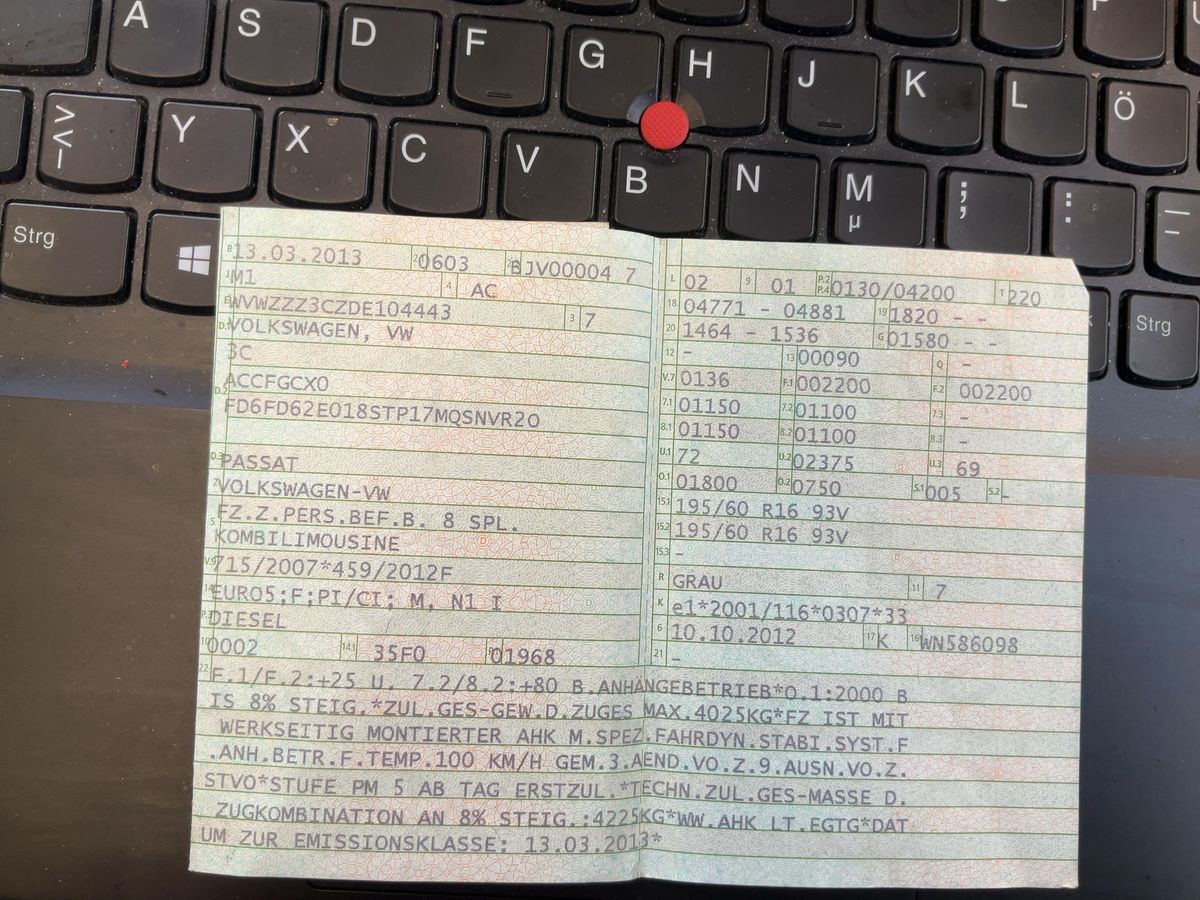 A S D F G H J K L Ö
> < | Y X C V B N M µ ; , : . _ -
Strg Strg
B 13.03.2013 2 0603 2 BJV00004 7
J M1 4 AC
E WVWZZZ3CZDE104443 3 7
D.1 VOLKSWAGEN, VW
3C
D.2 ACCFGCX0
FD6FD62E018STP17MQSNVR2O
D.3 PASSAT
2 VOLKSWAGEN-VW
5 FZ.Z.PERS.BEF.B. 8 SPL.
KOMBILIMOUSINE
V.9 715/2007*459/2012F
14 EURO5;F;PI/CI; M, N1 I
P.3 DIESEL
10 0002 14.1 35F0 P.1 01968
L 02 9 01 P.2 P.4 0130/04200 T 220
18 04771 - 04881 19 1820 - -
20 1464 - 1536 G 01580 - -
12 - 13 00090 Q -
V.7 0136 F.1 002200 F.2 002200
7.1 01150 7.2 01100 7.3 -
8.1 01150 8.2 01100 8.3 -
U.1 72 U.2 02375 U.3 69
O.1 01800 O.2 0750 S.1 005 S.2 -
15.1 195/60 R16 93V
15.2 195/60 R16 93V
15.3 -
R GRAU 11 7
K e1*2001/116*0307*33
6 10.10.2012 17 K 16 WN586098
21 -
22 F.1/F.2:+25 U. 7.2/8.2:+80 B.ANHÄNGEBETRIEB*O.1:2000 B
IS 8% STEIG.*ZUL.GES-GEW.D.ZUGES MAX.4025KG*FZ IST MIT
WERKSEITIG MONTIERTER AHK M.SPEZ.FAHRDYN.STABI.SYST.F
.ANH.BETR.F.TEMP.100 KM/H GEM.3.AEND.VO.Z.9.AUSN.VO.Z.
STVO*STUFE PM 5 AB TAG ERSTZUL.*TECHN.ZUL.GES-MASSE D.
ZUGKOMBINATION AN 8% STEIG.:4225KG*WW.AHK LT.EGTG*DAT
UM ZUR EMISSIONSKLASSE: 13.03.2013*